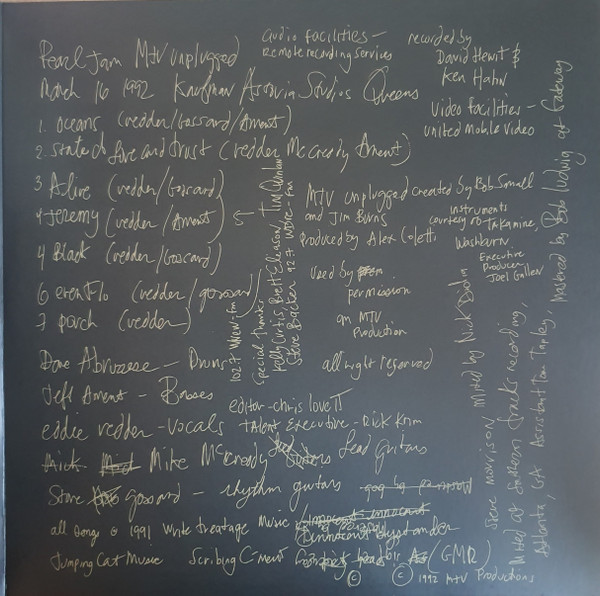 Pearl Jam MTV unplugged
March 16 1992 Kaufman Astoria Studios Queens
1. oceans (vedder/Gossard/Ament)
2. state of love and trust (vedder McCready Ament)
3 Alive (vedder/Gossard)
4 Jeremy (vedder/Ament)
4 Black (vedder/Gossard)
6 evenflo (vedder/gossard)
7 porch (vedder)
Dave Abruzzese - Drums
Jeff Ament - Basses
eddie vedder - vocals
Mike McCready Lead guitars
Steve gossard - rhythm guitars
all songs © 1991 write treatage Music Innocent Bystander
Jumping Cat Music Scribing C-ment (GMR)
audio facilities -
Remote recording services
recorded by
David Hewit &
Ken Hahn
Video facilities -
united mobile video
MTV unplugged created by Bob Small
and Jim Burns
Produced by Alex Coletti
instruments
courtesy of Takamine,
Washburn
Executive
Producer
Joel Gallen
used by
permission
an MTV
Production
all right reserved
editor - chris lovett
Talent Executive - Rick Krim
102.7 WNEW-FM
special thanks
Polly Curtis, Brett Eleason, Tim
Steve Bracken 92.7 WDRE-FM
Steve Morrison Mixed by Nick Didia
Mixed at Southern tracks recording,
Atlanta, GA Assistant Tom Tapley,
Mastered by Bob Ludwig at Gateway
© © 1992 MTV Productions